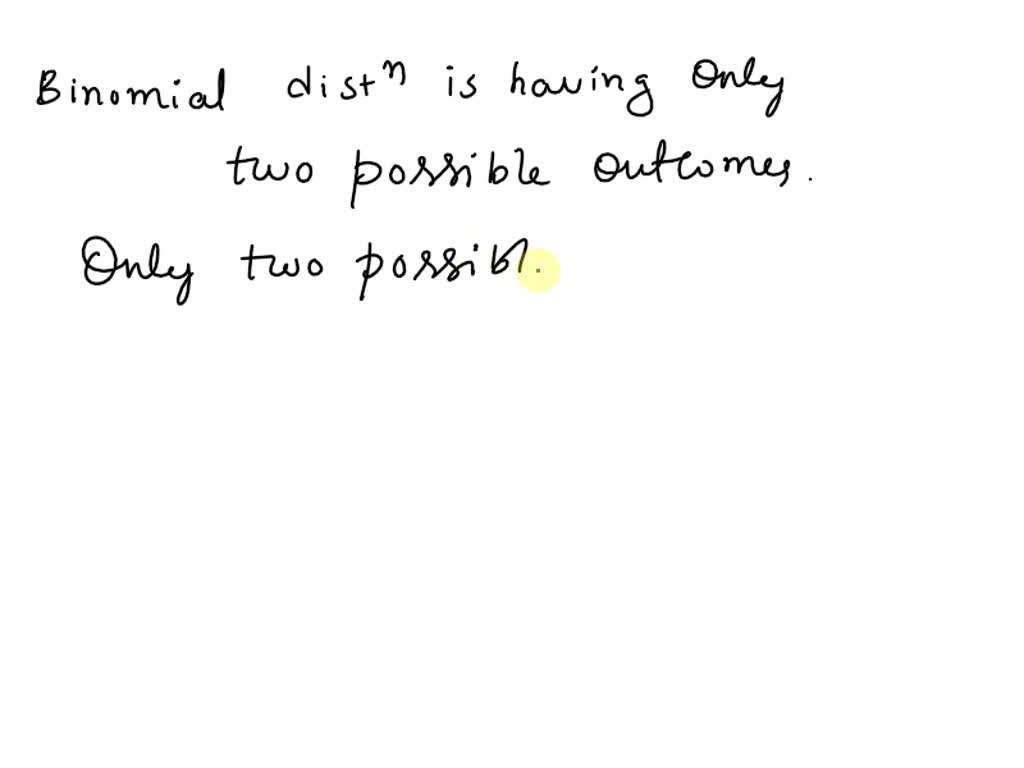 Binomial distⁿ is having Only
two possible outcomes.
Only two possibl